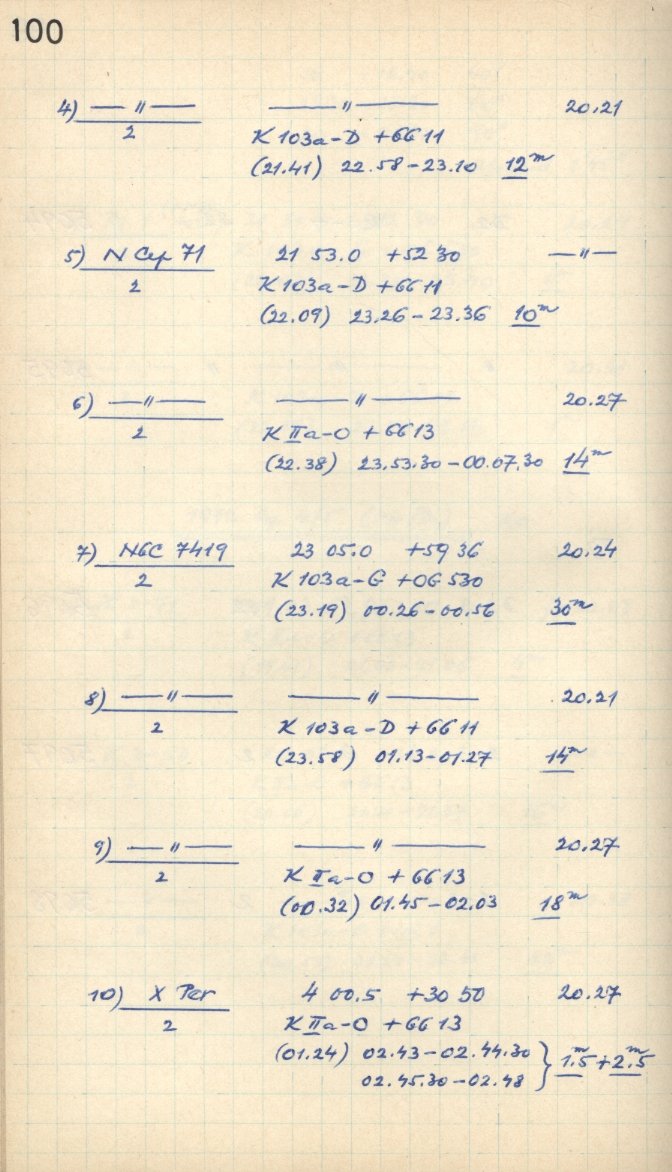 100
4) — " — — " — 20.21
2
K 103a-D + GG 11
(21.41) 22.58-23.10 12m
5) N Cep 71 21 53.0 +52 30 — " —
2
K 103a-D + GG 11
(22.09) 23.26-23.36 10m
6) — " — — " — 20.27
2
K IIa-O + GG 13
(22.38) 23.53.30-00.07.30 14m
7) NGC 7419 23 05.0 +59 36 20.24
2
K 103a-G + OG 530
(23.19) 00.26-00.56 30m
8) — " — — " — 20.21
2
K 103a-D + GG 11
(23.58) 01.13-01.27 14m
9) — " — — " — 20.27
2
K IIa-O + GG 13
(00.32) 01.45-02.03 18m
10) X Per 4 00.5 +30 50 20.27
2
K IIa-O + GG 13
(01.24) 02.43-02.44.30 } 1.5m + 2.5m
02.45.30-02.48